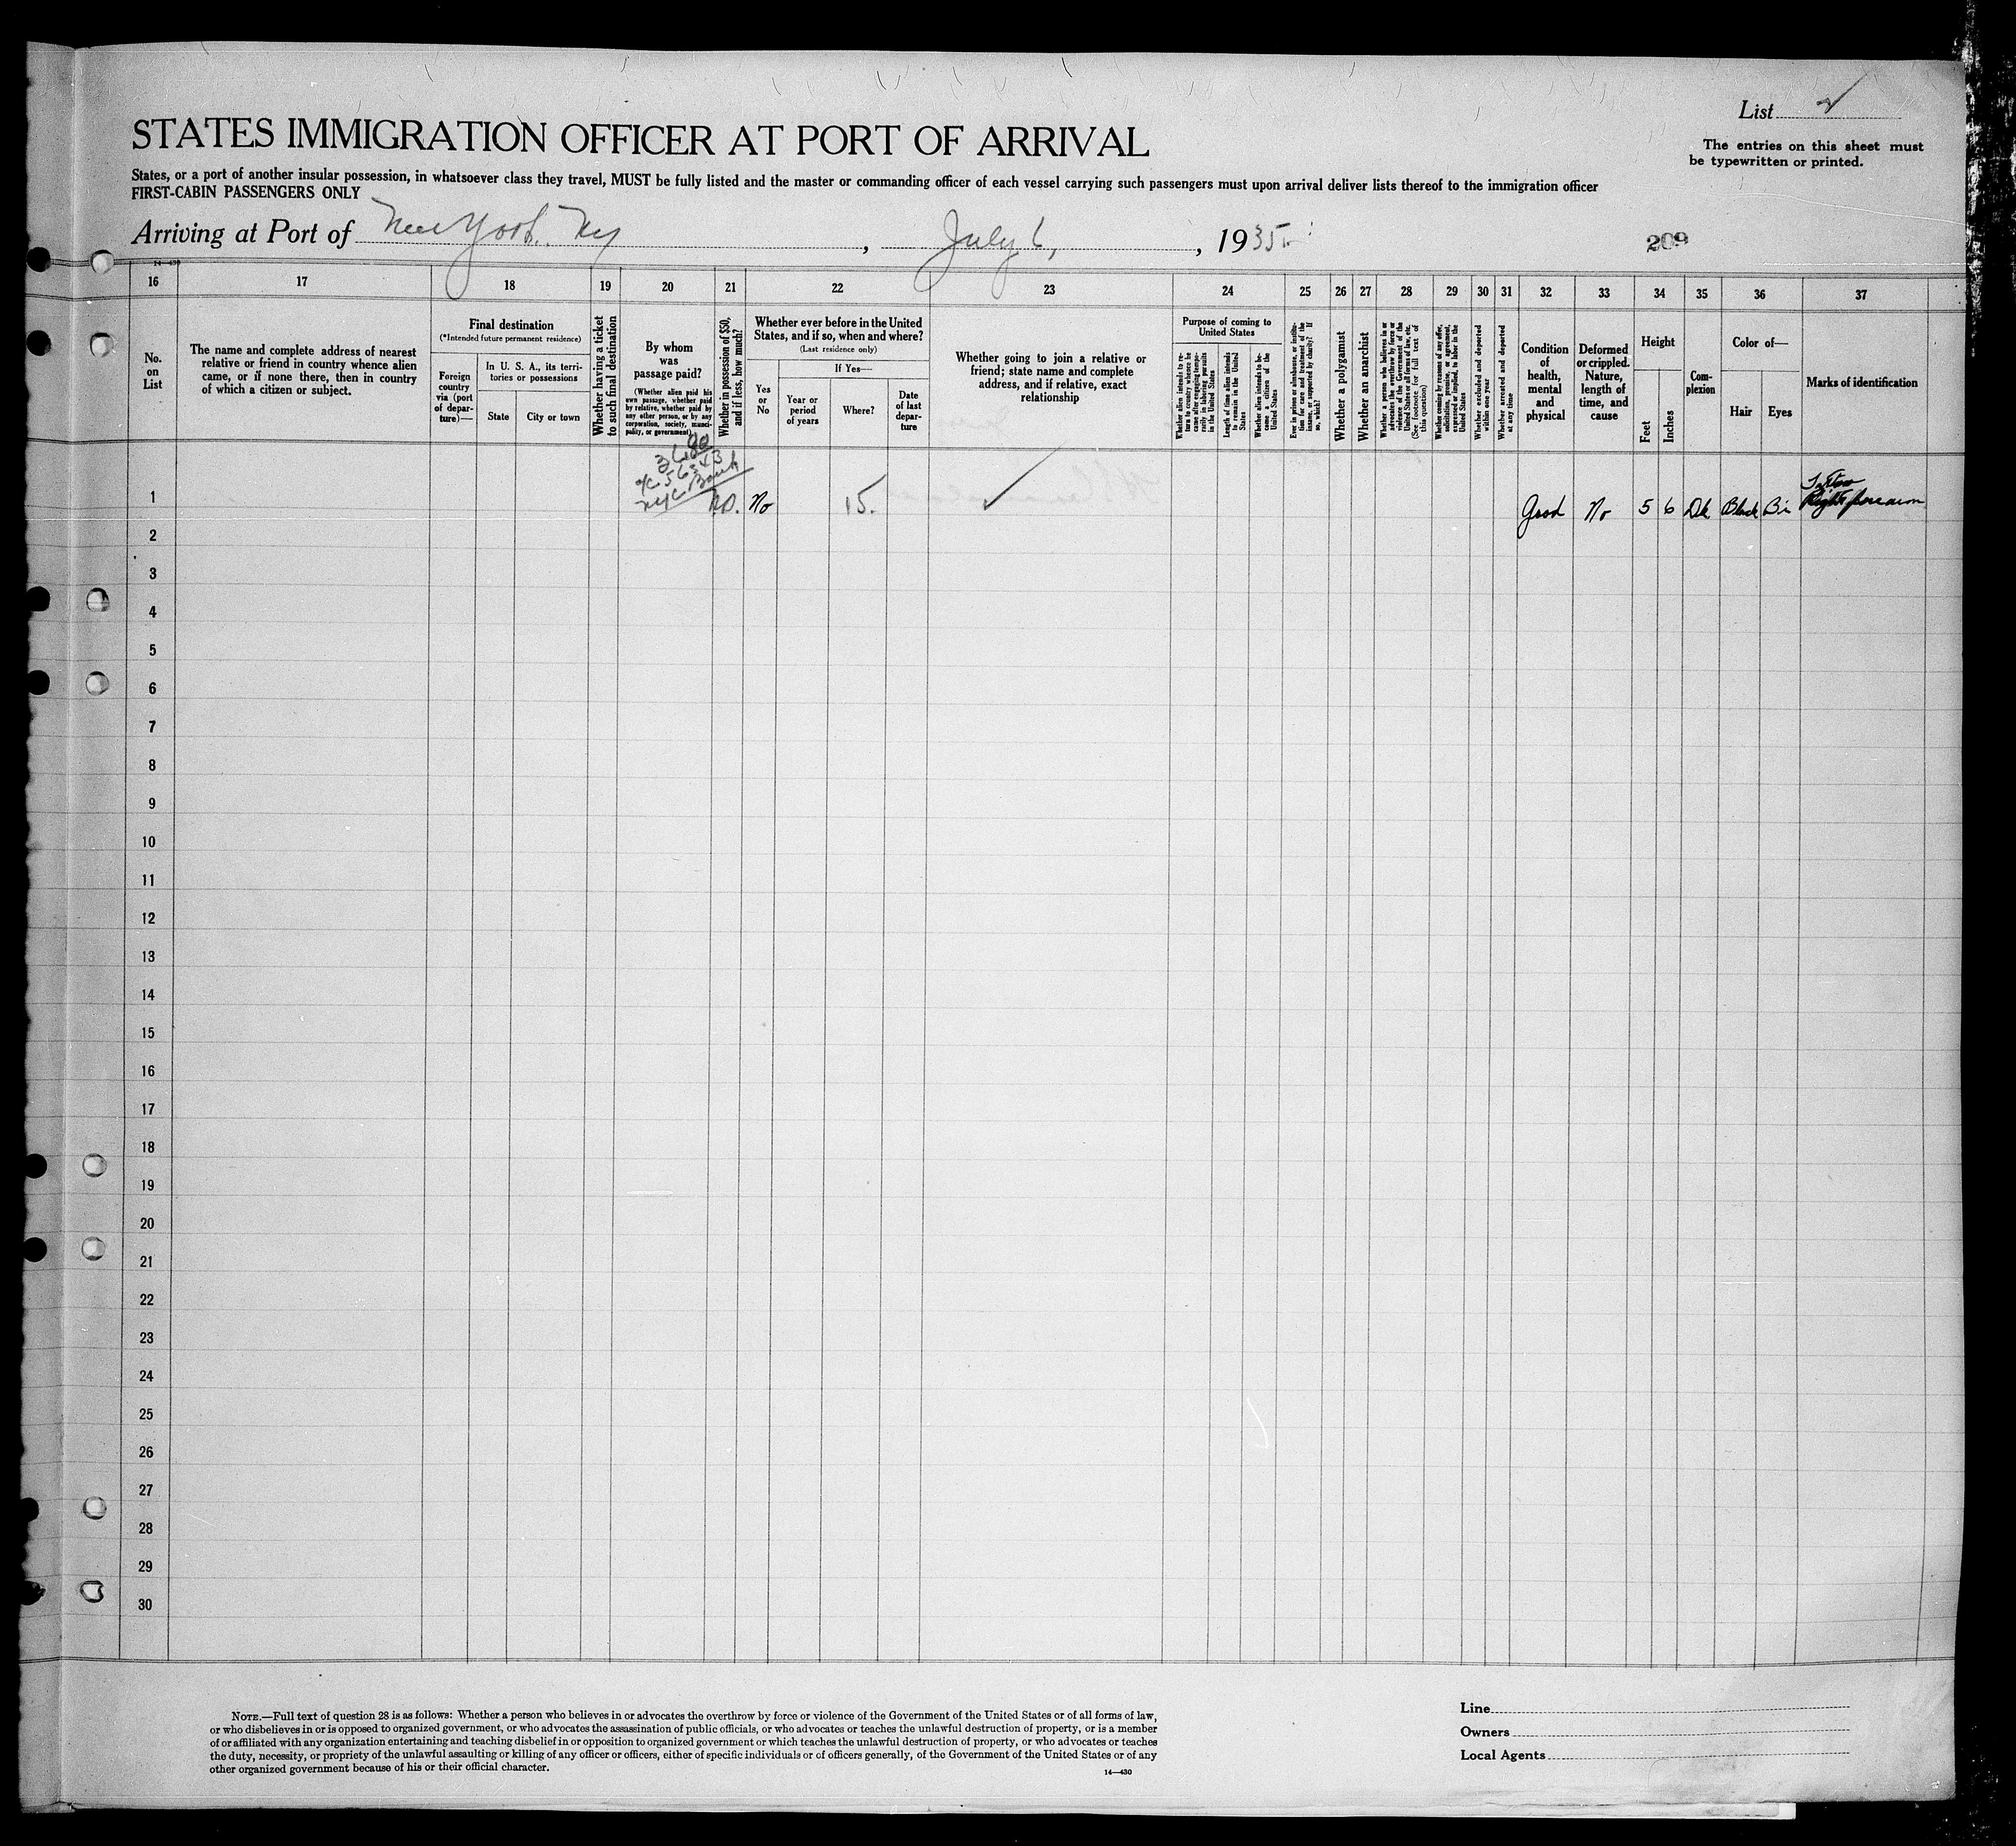 List 2
The entries on this sheet must
be typewritten or printed.
STATES IMMIGRATION OFFICER AT PORT OF ARRIVAL
States, or a port of another insular possession, in whatsoever class they travel, MUST be fully listed and the master or commanding officer of each vessel carrying such passengers must upon arrival deliver lists thereof to the immigration officer
FIRST-CABIN PASSENGERS ONLY
Arriving at Port of New York. Ny, July 6, 1935.
209
14—430
16 17 18 19 20 21 22 23 24 25 26 27 28 29 30 31 32 33 34 35 36 37
No.
on
List
The name and complete address of nearest
relative or friend in country whence alien
came, or if none there, then in country
of which a citizen or subject.
Final destination
(*Intended future permanent residence)
Foreign
country
via (port
of depar-
ture)—
In U. S. A., its terri-
tories or possessions
State
City or town
Whether having a ticket
to such final destination
By whom
was
passage paid?
(Whether alien paid his
own passage, whether paid
by relative, whether paid by
any other person, or by any
corporation, society, munici-
pality, or government)
Whether in possession of $50,
and if less, how much?
Whether ever before in the United
States, and if so, when and where?
(Last residence only)
Yes
or
No
If Yes—
Year or
period
of years
Where?
Date
of last
depar-
ture
Whether going to join a relative or
friend; state name and complete
address, and if relative, exact
relationship
Purpose of coming to
United States
Whether alien intends to re-
turn to country whence he
came after engaging tempo-
rarily in laboring pursuits
in the United States
Length of time alien intends
to remain in the United
States
Whether alien intends to be-
come a citizen of the
United States
Ever in prison or almshouse, or institu-
tion for care and treatment of the
insane, or supported by charity? If
so, which?
Whether a polygamist
Whether an anarchist
Whether a person who believes in or
advocates the overthrow by force or
violence of the Government of the
United States or all forms of law, etc.
(See footnote for full text of
this question)
Whether coming by reasons of any offer,
solicitation, promise, or agreement,
expressed or implied, to labor in the
United States
Whether excluded and deported
within one year
Whether arrested and deported
at any time
Condition
of
health,
mental
and
physical
Deformed
or crippled.
Nature,
length of
time, and
cause
Height
Feet
Inches
Com-
plexion
Color of—
Hair
Eyes
Marks of identification
1 No 15. Good No 5 6 Dk Black Br Tattoo
Right forearm
2
3
4
5
6
7
8
9
10
11
12
13
14
15
16
17
18
19
20
21
22
23
24
25
26
27
28
29
30
NOTE.—Full text of question 28 is as follows: Whether a person who believes in or advocates the overthrow by force or violence of the Government of the United States or of all forms of law,
or who disbelieves in or is opposed to organized government, or who advocates the assassination of public officials, or who advocates or teaches the unlawful destruction of property, or is a member
of or affiliated with any organization entertaining and teaching disbelief in or opposition to organized government or which teaches the unlawful destruction of property, or who advocates or teaches
the duty, necessity, or propriety of the unlawful assaulting or killing of any officer or officers, either of specific individuals or of officers generally, of the Government of the United States or of any
other organized government because of his or their official character.
14—430
Line
Owners
Local Agents